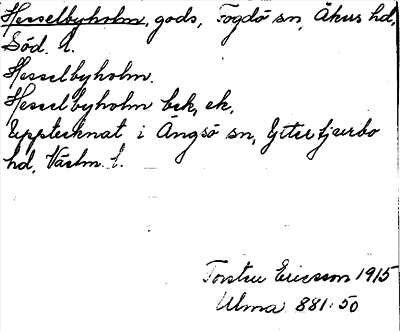 Hesselbyholm, gods, Fogdö sn, Åkers hd,
Söd. l.
Hesselbyholm.
Hesselbyholm bek, ek.
Upptecknat i Ängsö sn, Ytterfjurbo
hd, Västm. l.
Torsten Ericsson 1915
Ulma 881:50